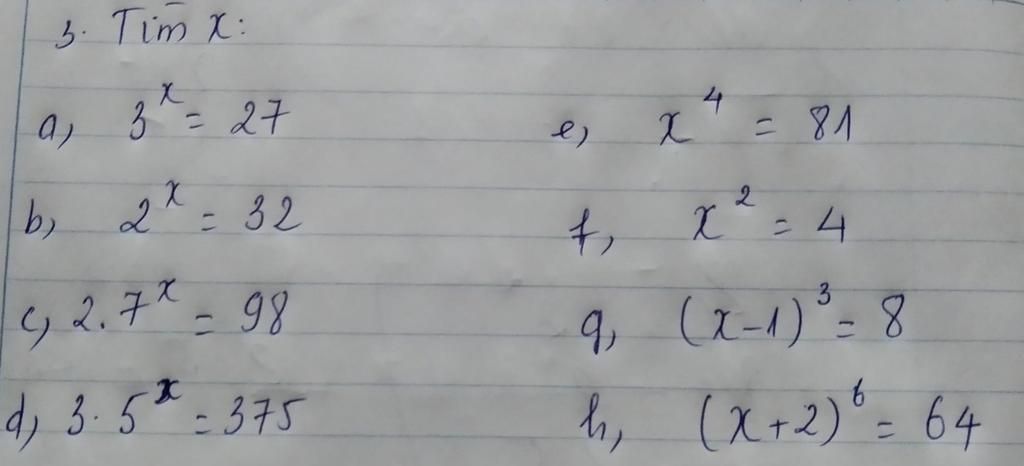 3. Tìm x:
a, 3^x = 27
b, 2^x = 32
c, 2.7^x = 98
d, 3.5^x = 375
e, x^4 = 81
f, x^2 = 4
g, (x-1)^3 = 8
h, (x+2)^6 = 64